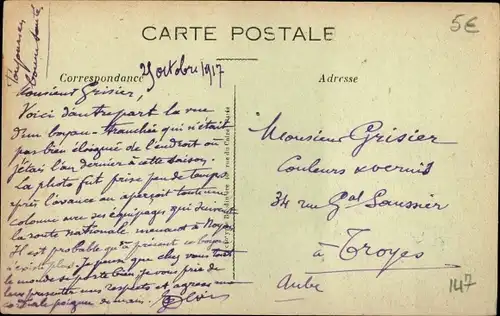 CARTE POSTALE
5€
Toujours en bonne santé
Correspondance
25 octobre 1917
Adresse
Monsieur Grisier,
Voici d'autre part la vue
d'un boyau-tranchée qui n'était
pas bien éloigné de l'endroit où
j'étais l'an dernier à cette saison.
La photo fut prise peu de temps
après l'avance on aperçoit toute une
colonne avec ses équipages qui suivent
la route nationale menant à Noyon
Il est probable qu'à présent ce boyau
n'existe plus. Je pense que chez vous tout
le monde se porte bien, je vous prie de
leur présenter mes respects et agréez ma
cordiale poignée de main.
Monsieur Grisier
Couleurs & vernis
34 rue Gal Saussier
à Troyes
Aube
147